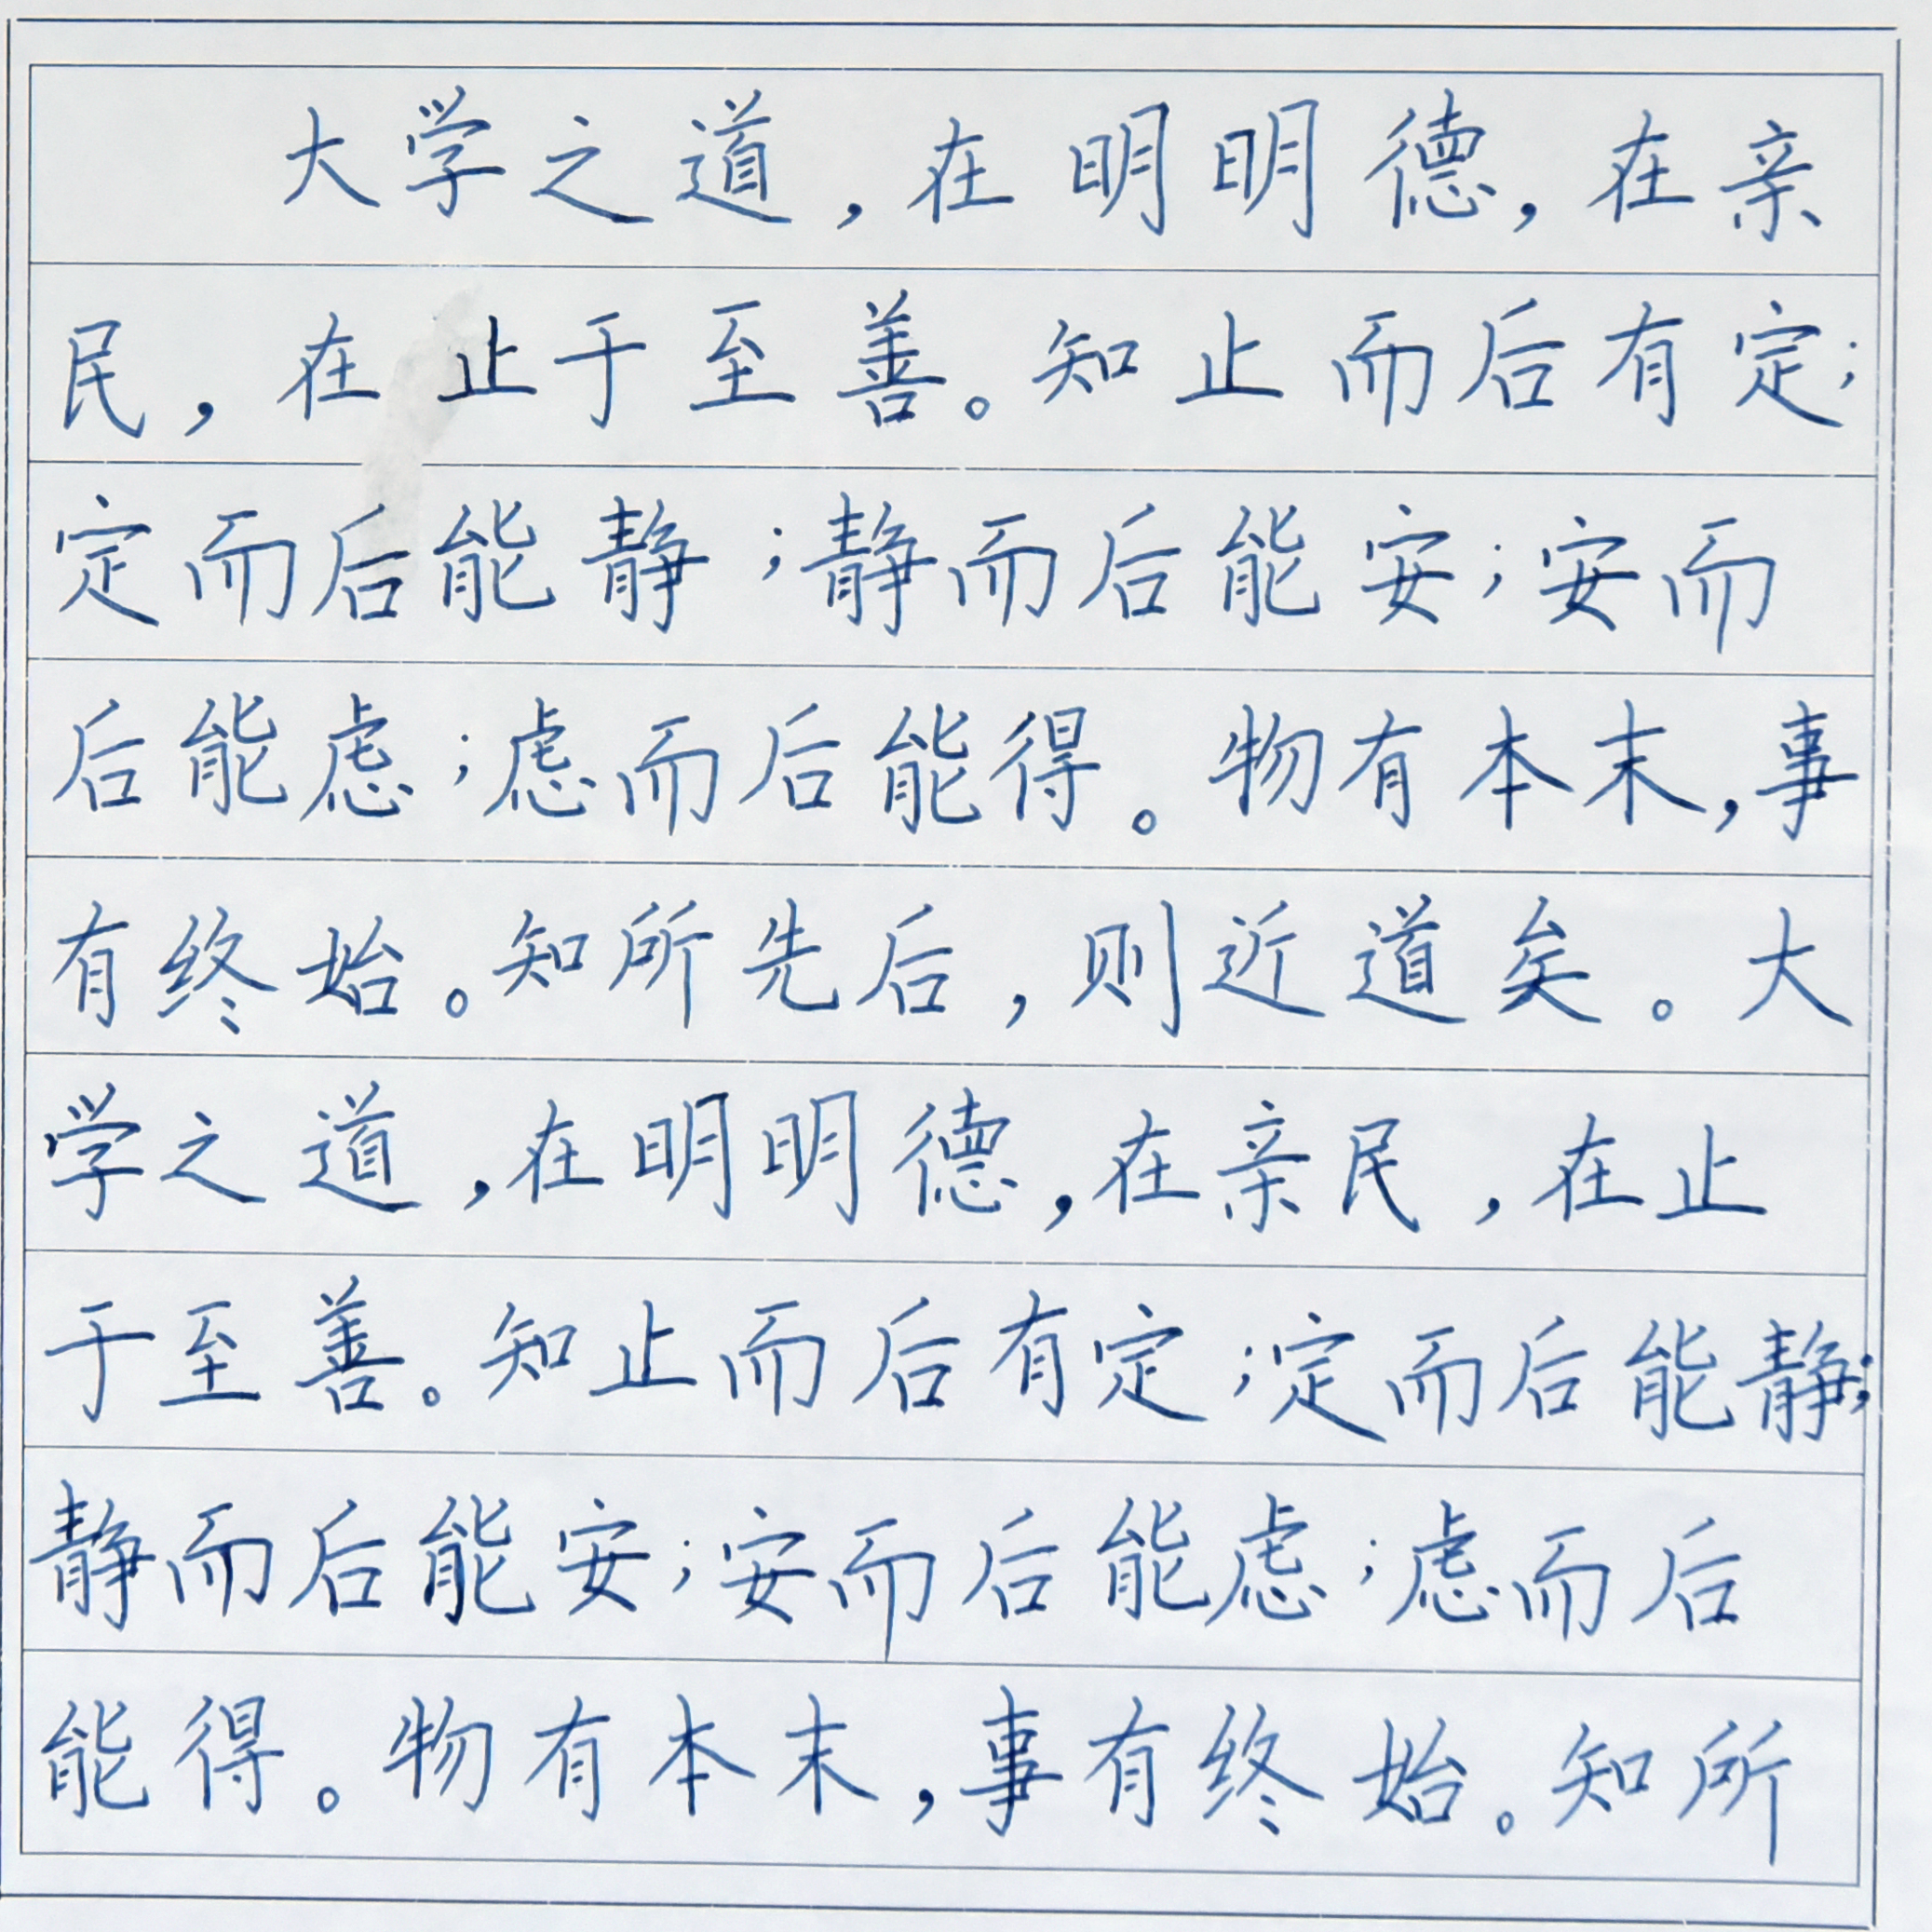 大学之道，在明明德，在亲
民，在止于至善。知止而后有定；
定而后能静；静而后能安；安而
后能虑；虑而后能得。物有本末，事
有终始。知所先后，则近道矣。大
学之道，在明明德，在亲民，在止
于至善。知止而后有定；定而后能静；
静而后能安；安而后能虑；虑而后
能得。物有本末，事有终始。知所